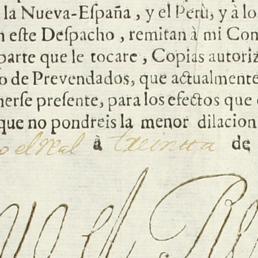 la Nueva-España, y el Perù, y à lo
n este Despacho, remitan à mi Con
parte que le tocare, Copias autoriz
o de Prevendados, que actualmente
nerse presente, para los efectos que
que no pondreis la menor dilacion
o el Real à treinta de
Yo el Re